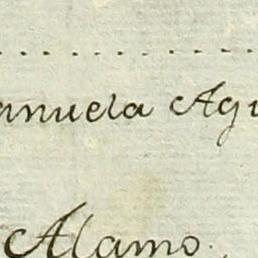 anuela Agu
Alamo.